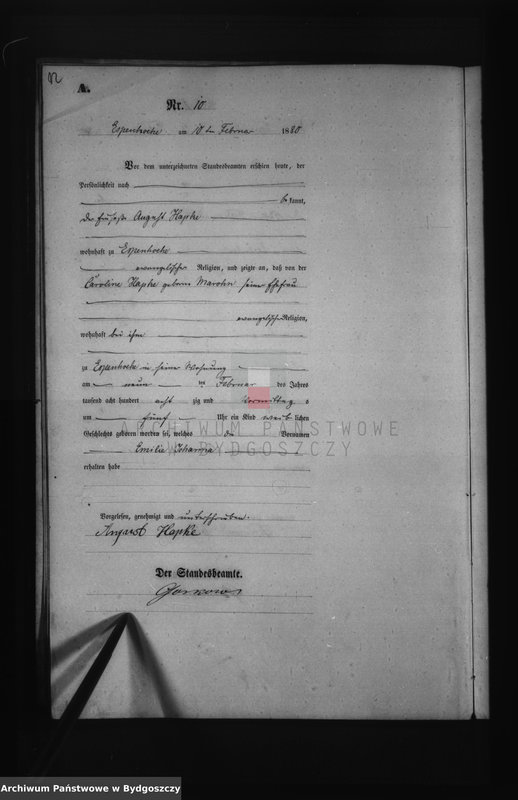 A.
Nr. 10
Espenhoehe am 10 ten Februar 1880
Vor dem unterzeichneten Standesbeamten erschien heute, der
Persönlichkeit nach
be kannt,
der August Hapke
wohnhaft zu Espenhoehe
evangelischer Religion, und zeigte an, daß von der
Caroline Hapke geborne Marohn seiner Ehefrau
evangelischer Religion,
wohnhaft bei ihm
zu Espenhoehe in seiner Wohnung
am neun ten Februar des Jahres
tausend acht hundert acht zig und Vormittags
um fünf Uhr ein Kind weib lichen
Geschlechts geboren worden sei, welches die Vornamen
Emilie Johanna
erhalten habe
Vorgelesen, genehmigt und unterschrieben.
August Hapke
Der Standesbeamte.
ARCHIWUM PAŃSTWOWE
W BYDGOSZCZY
Archiwum Państwowe w Bydgoszczy